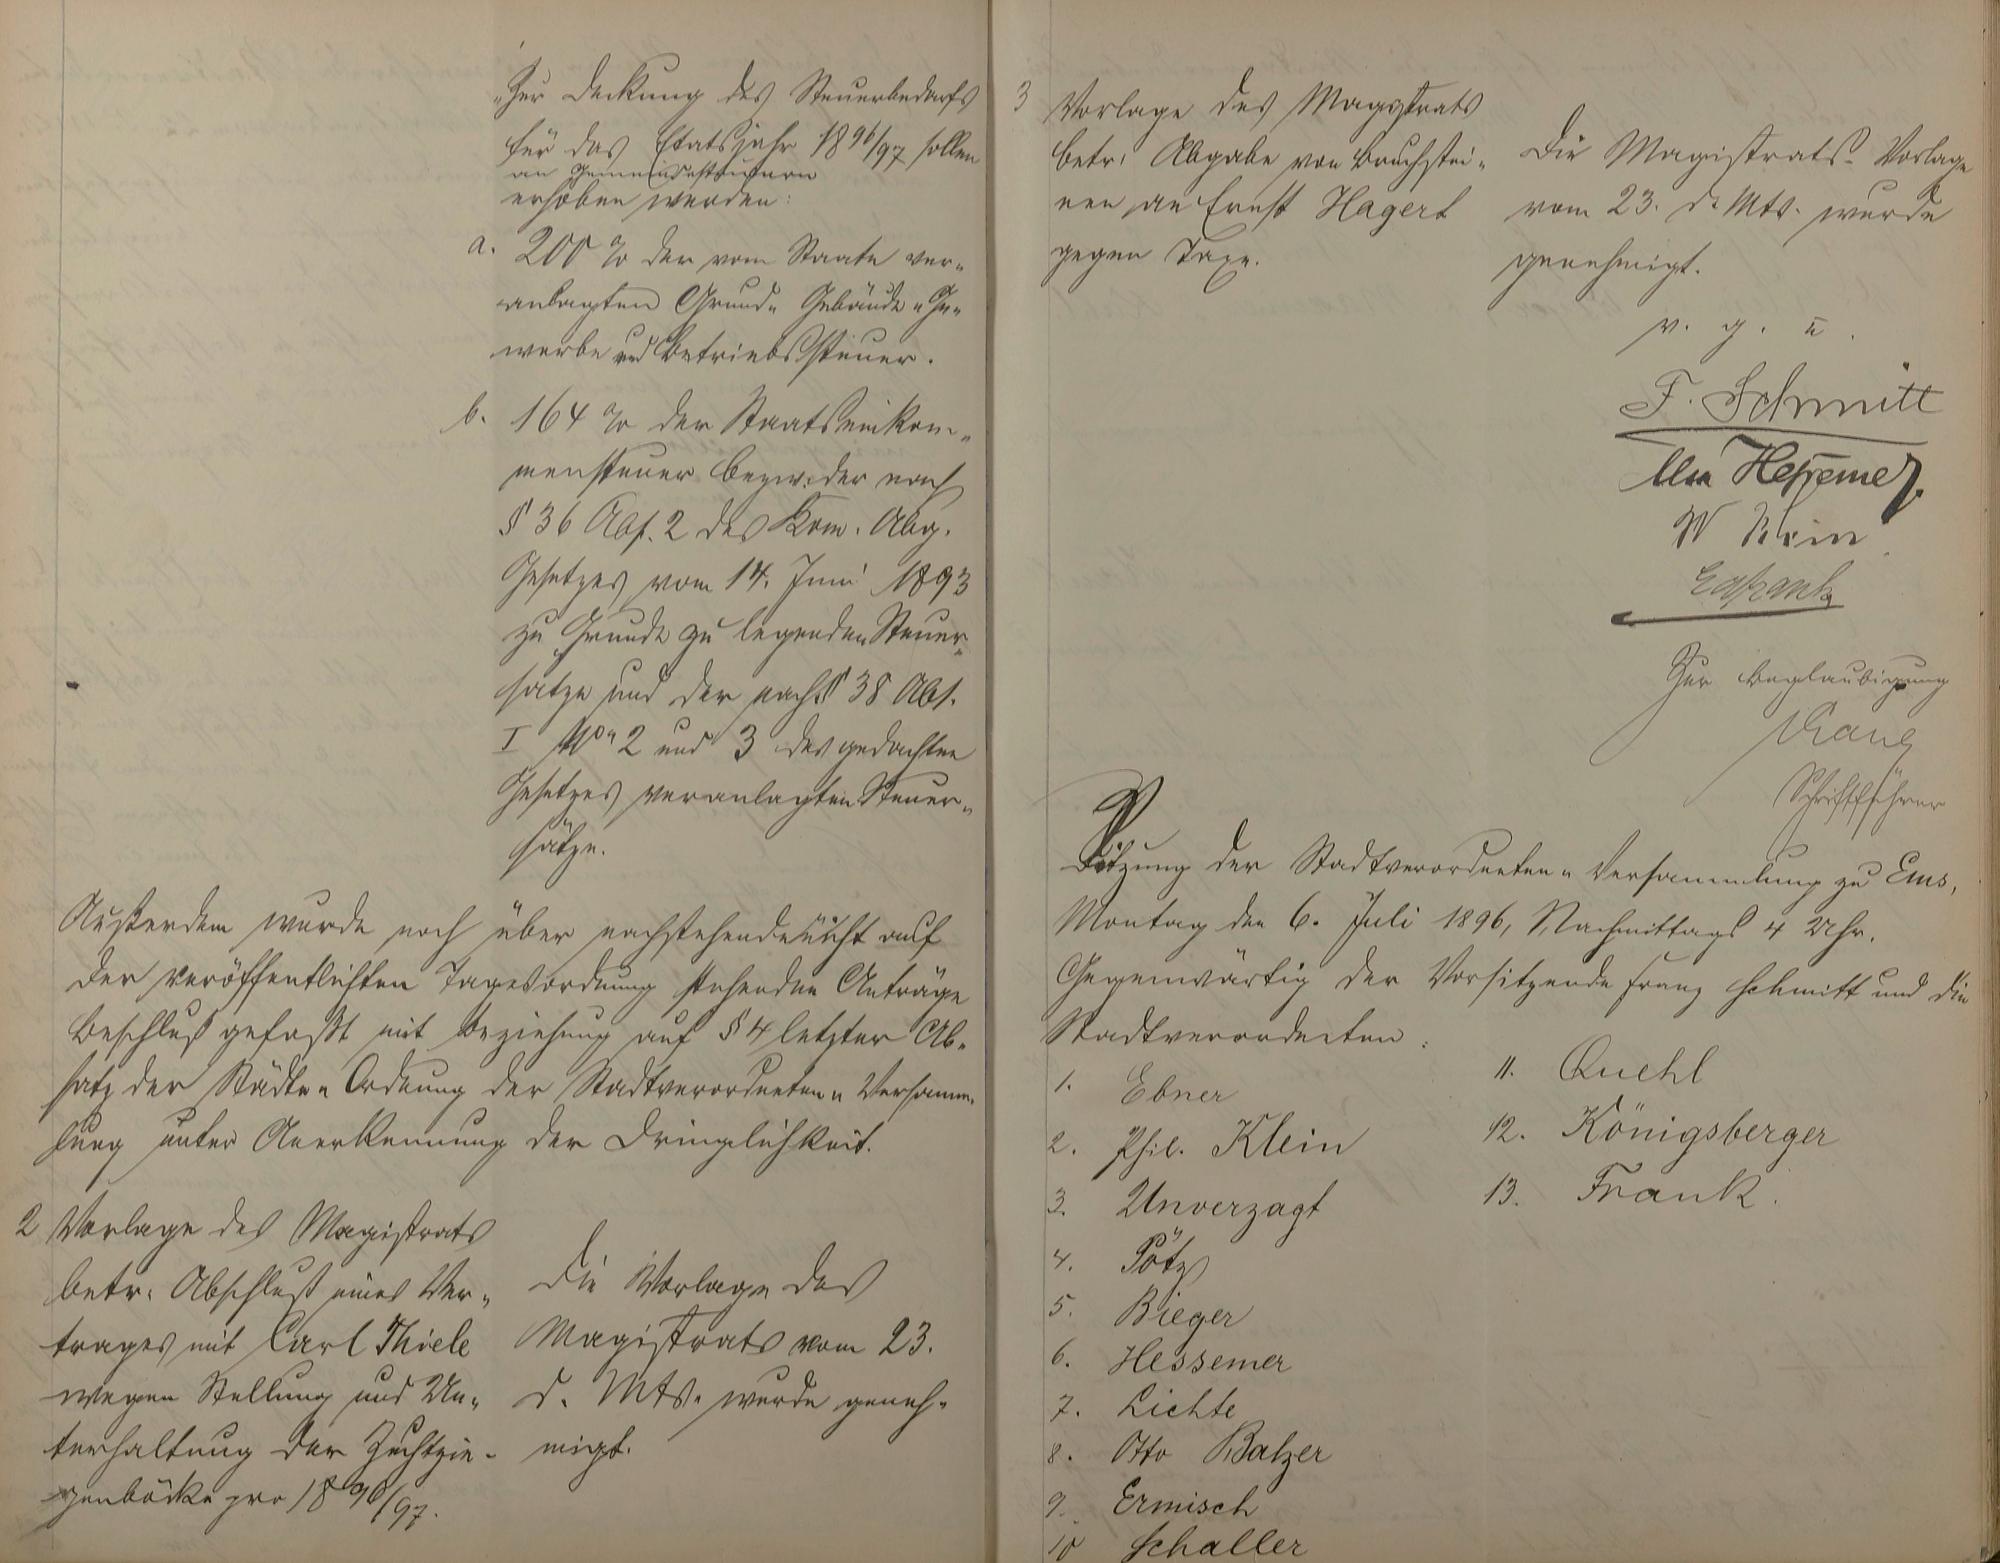 „Zur Deckung des Steuerbedarfs
für das Etatsjahr 1896/97 sollen
an Gemeindesteuern
erhoben werden:
a. 200 % der vom Staate ver-
anlagten Grund- Gebäude- Ge-
werbe und Betriebssteuer.
b. 164 % der Staatseinkom-
mensteuer bezw. der nach
§ 36 Abs. 2 des Kom. Abg.
Gesetzes vom 14. Juni 1893
zu Grunde zu legenden Steuer-
satze und der nach § 38 Abs.
I No 2 und 3 des gedachten
Gesetzes veranlagten Steuer-
sätze.
Außerdem wurde noch über nachstehende nicht auf
der veröffentlichten Tagesordnung stehenden Anträge
Beschluß gefaßt mit Beziehung auf § 4 letzter Ab-
satz der Städte-Ordnung der Stadtverordneten-Versamm-
lung unter Anerkennung der Dringlichkeit.
2 Vorlage des Magistrats
betr. Abschluß eines Ver-
trages mit Carl Thiele
wegen Stellung und Un-
terhaltung der Zuchtzie-
genböcke pro 1896/97.
Die Vorlage des
Magistrats vom 23.
d. Mts. wurde geneh-
migt.
3 Vorlage des Magistrats
betr. Abgabe von Bruchstei-
nen an Ernst Hagert
gegen Taxe.
Die Magistrats-Vorlage
vom 23. d. Mts. wurde
genehmigt.
v. g. u.
F. Schmitt
Hessemer
W Klein
Ed Frank
Zur Beglaubigung
Schriftführer
Sitzung der Stadtverordneten-Versammlung zu Ems,
Montag den 6. Juli 1896, Nachmittags 4 Uhr.
Gegenwärtig der Vorsitzende Franz Schmitt und die
Stadtverordneten:
1. Ebner
2. Phil. Klein
3. Unverzagt
4. Pötz
5. Rieger
6. Hessemer
7. Lichte
8. Otto Balzer
9. Ermisch
10 Schaller
11. Quehl
12. Königsberger
13. Frank.